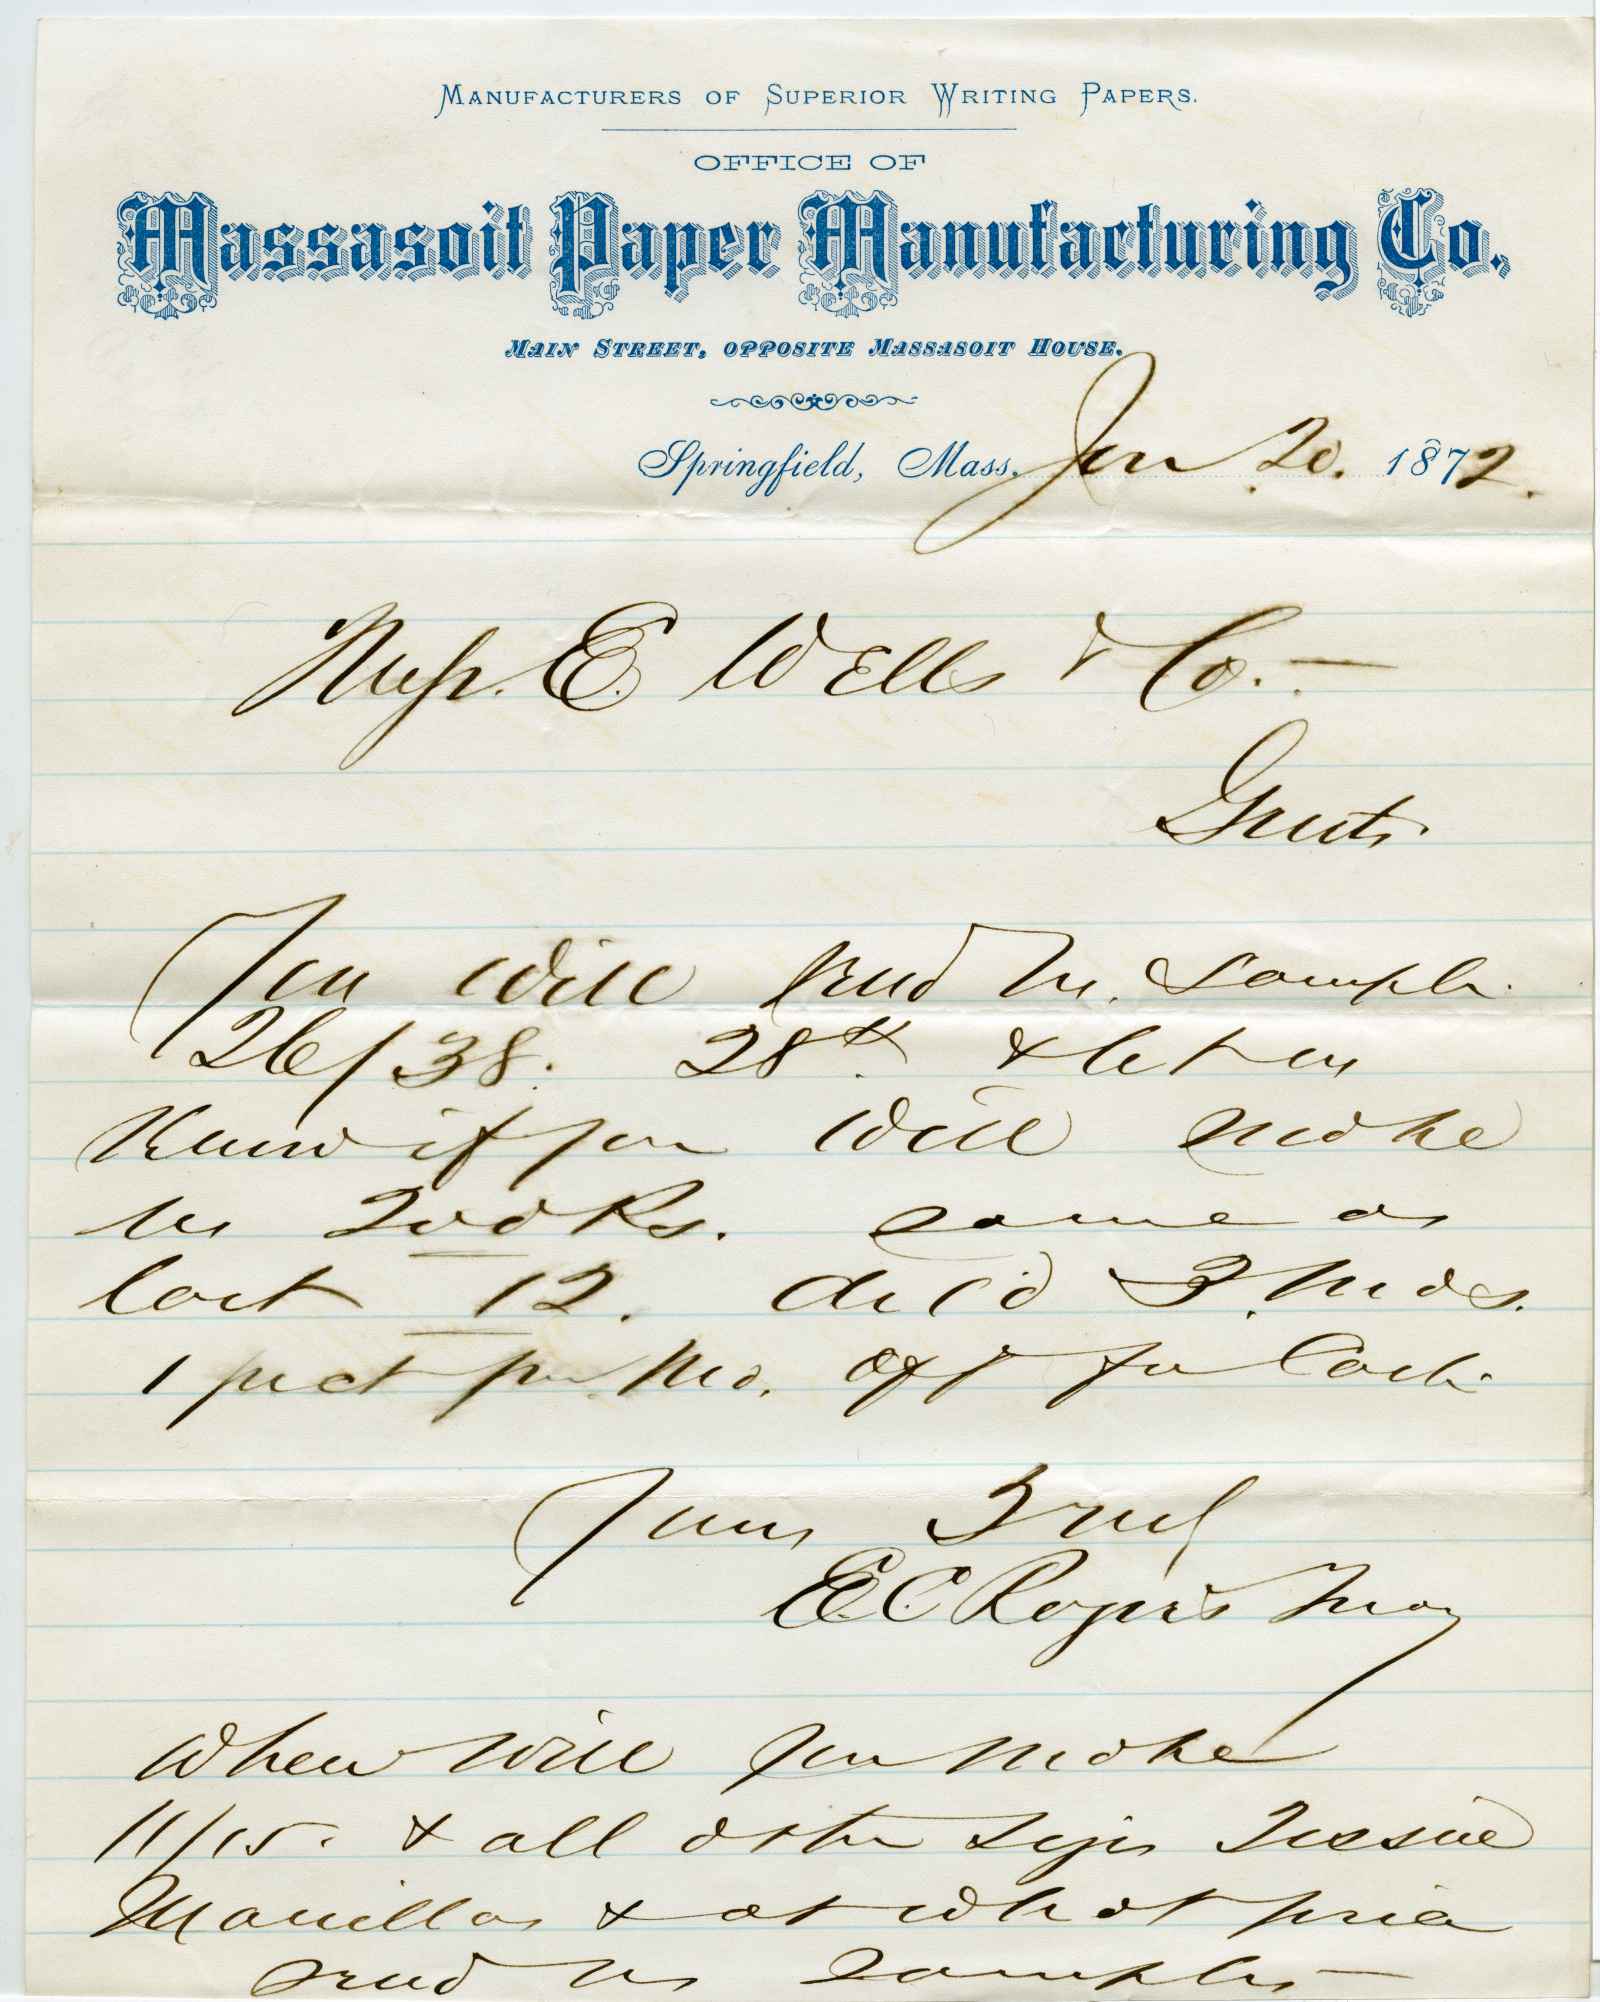 MANUFACTURERS OF SUPERIOR WRITING PAPERS.
OFFICE OF
Massasoit Paper Manufacturing Co.,
MAIN STREET, OPPOSITE MASSASOIT HOUSE.
Springfield, Mass. Jan 20. 1872.
Messrs. E. Wells & Co. —
Gents
You will send us. sample
26/38. 28 & let us
know if you will make
us 200 Rs. same as
last 12. del'd 3 mos.
1 per ct per Mo. off for Cash.
Yours Truly
E. C. Rogers
When will you make
11/15. & all other sizes Tissue
Manillas & at what price
send us samples —